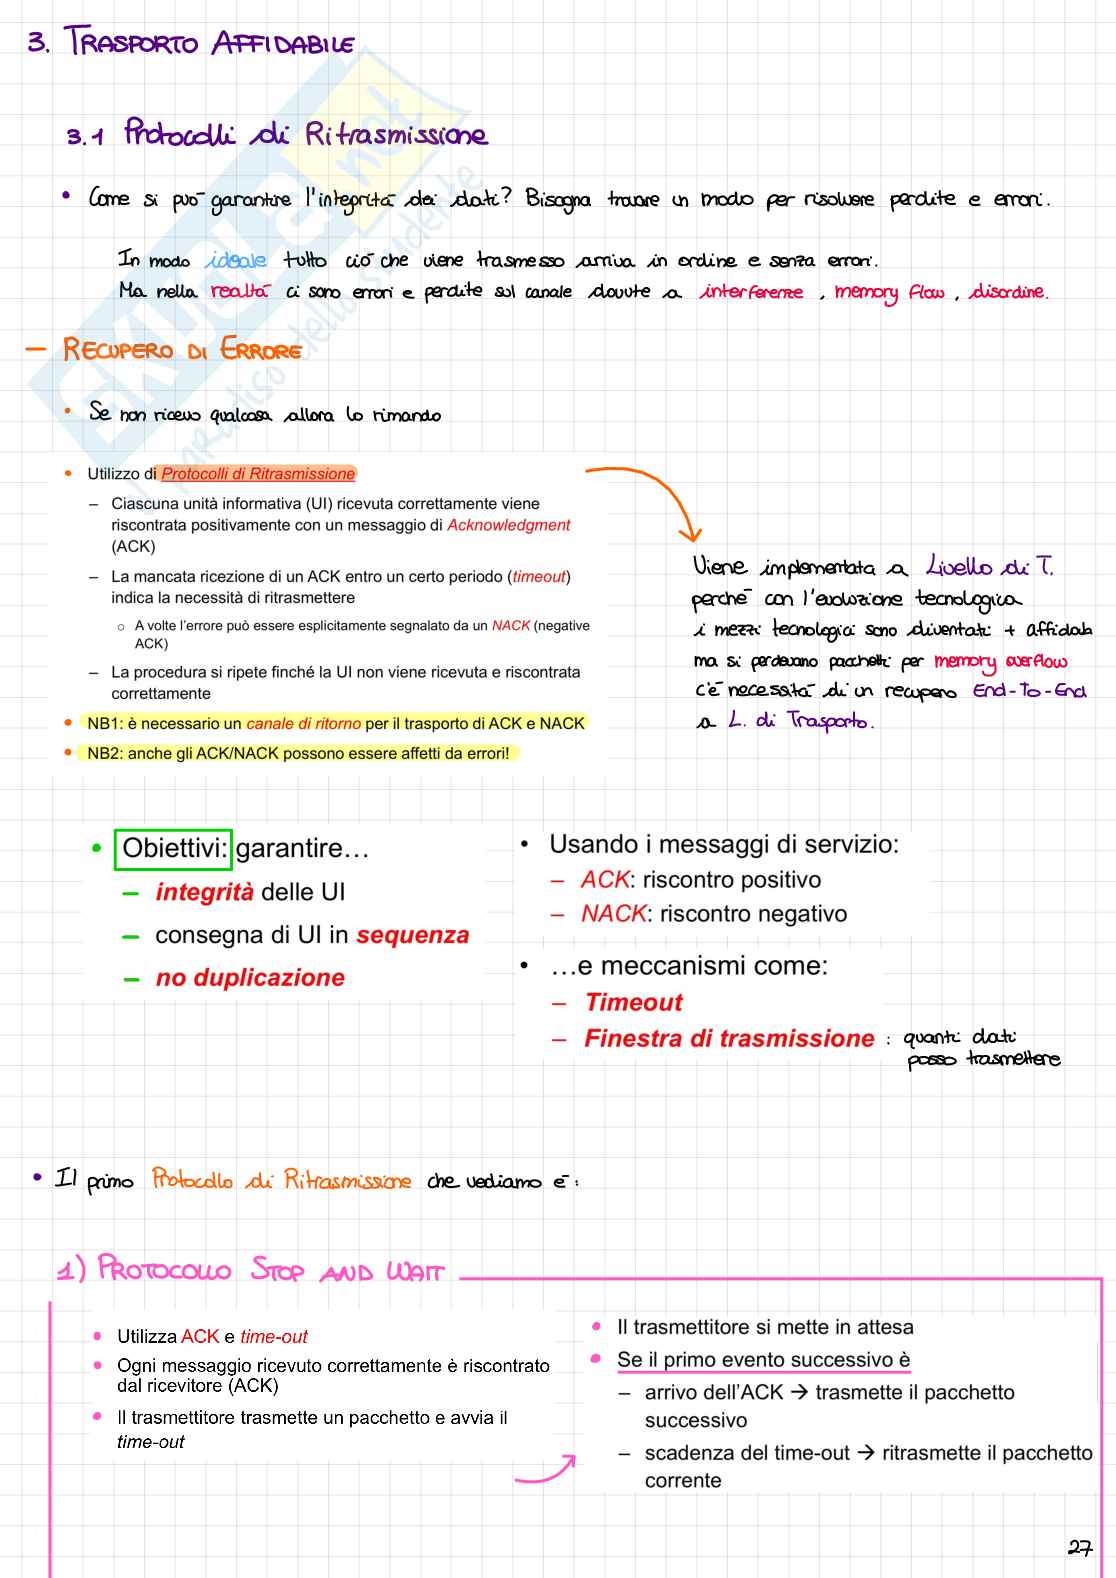 3. TRASPORTO AFFIDABILE
3.1 Protocolli di Ritrasmissione
• Come si può garantire l'integrità dei dati? Bisogna trovare un modo per risolvere perdite e errori.
In modo ideale tutto ciò che viene trasmesso arriva in ordine e senza errori.
Ma nella realtà ci sono errori e perdite sul canale dovute a interferenze, memory flow, disordine.
— RECUPERO DI ERRORE
• Se non ricevo qualcosa allora lo rimando
• Utilizzo di Protocolli di Ritrasmissione
– Ciascuna unità informativa (UI) ricevuta correttamente viene
riscontrata positivamente con un messaggio di Acknowledgment
(ACK)
– La mancata ricezione di un ACK entro un certo periodo (timeout)
indica la necessità di ritrasmettere
○ A volte l'errore può essere esplicitamente segnalato da un NACK (negative
ACK)
– La procedura si ripete finché la UI non viene ricevuta e riscontrata
correttamente
• NB1: è necessario un canale di ritorno per il trasporto di ACK e NACK
• NB2: anche gli ACK/NACK possono essere affetti da errori!
Viene implementata a Livello di T.
perché con l'evoluzione tecnologica
i mezzi tecnologici sono diventati + affidab
ma si perdevano pacchetti per memory overflow
c'è necessità di un recupero End-To-End
a L. di Trasporto.
• Obiettivi: garantire…
– integrità delle UI
– consegna di UI in sequenza
– no duplicazione
• Usando i messaggi di servizio:
– ACK: riscontro positivo
– NACK: riscontro negativo
• …e meccanismi come:
– Timeout
– Finestra di trasmissione : quanti dati
posso trasmettere
• Il primo Protocollo di Ritrasmissione che vediamo è:
1) PROTOCOLLO STOP AND WAIT
• Utilizza ACK e time-out
• Ogni messaggio ricevuto correttamente è riscontrato
dal ricevitore (ACK)
• Il trasmettitore trasmette un pacchetto e avvia il
time-out
• Il trasmettitore si mette in attesa
• Se il primo evento successivo è
– arrivo dell'ACK → trasmette il pacchetto
successivo
– scadenza del time-out → ritrasmette il pacchetto
corrente
27
SKUOLA.net
il paradiso dello studente